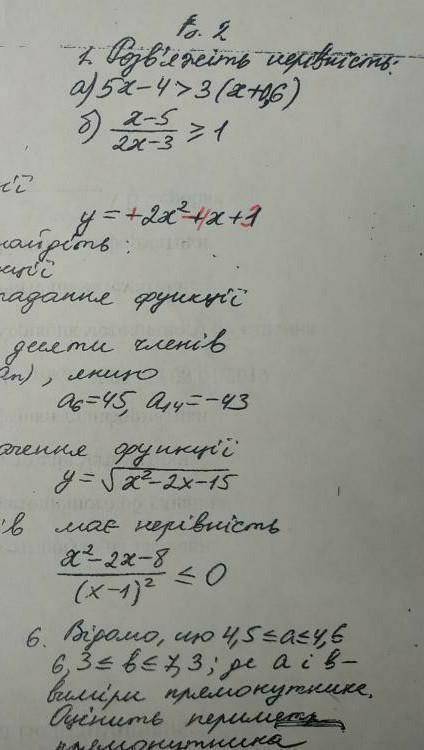 в. 2
1. Розв'яжіть нерівність:
а) 5x-4>3(x+0,6)
б) x-5/2x-3 ≥ 1
ії
y = -2x²-4x+3
найдіть:
кції
падання функції
десяти членів
an), якщо
a₆=45, a₁₄=-43
ачення функції
y=√x²-2x-15
ів має нерівність
x²-2x-8/(x-1)² ≤ 0
6. Відомо, що 4,5≤a≤4,6
6,3≤b≤7,3; де a і b-
виміри прямокутника.
Оцініть периметр
прямокутника